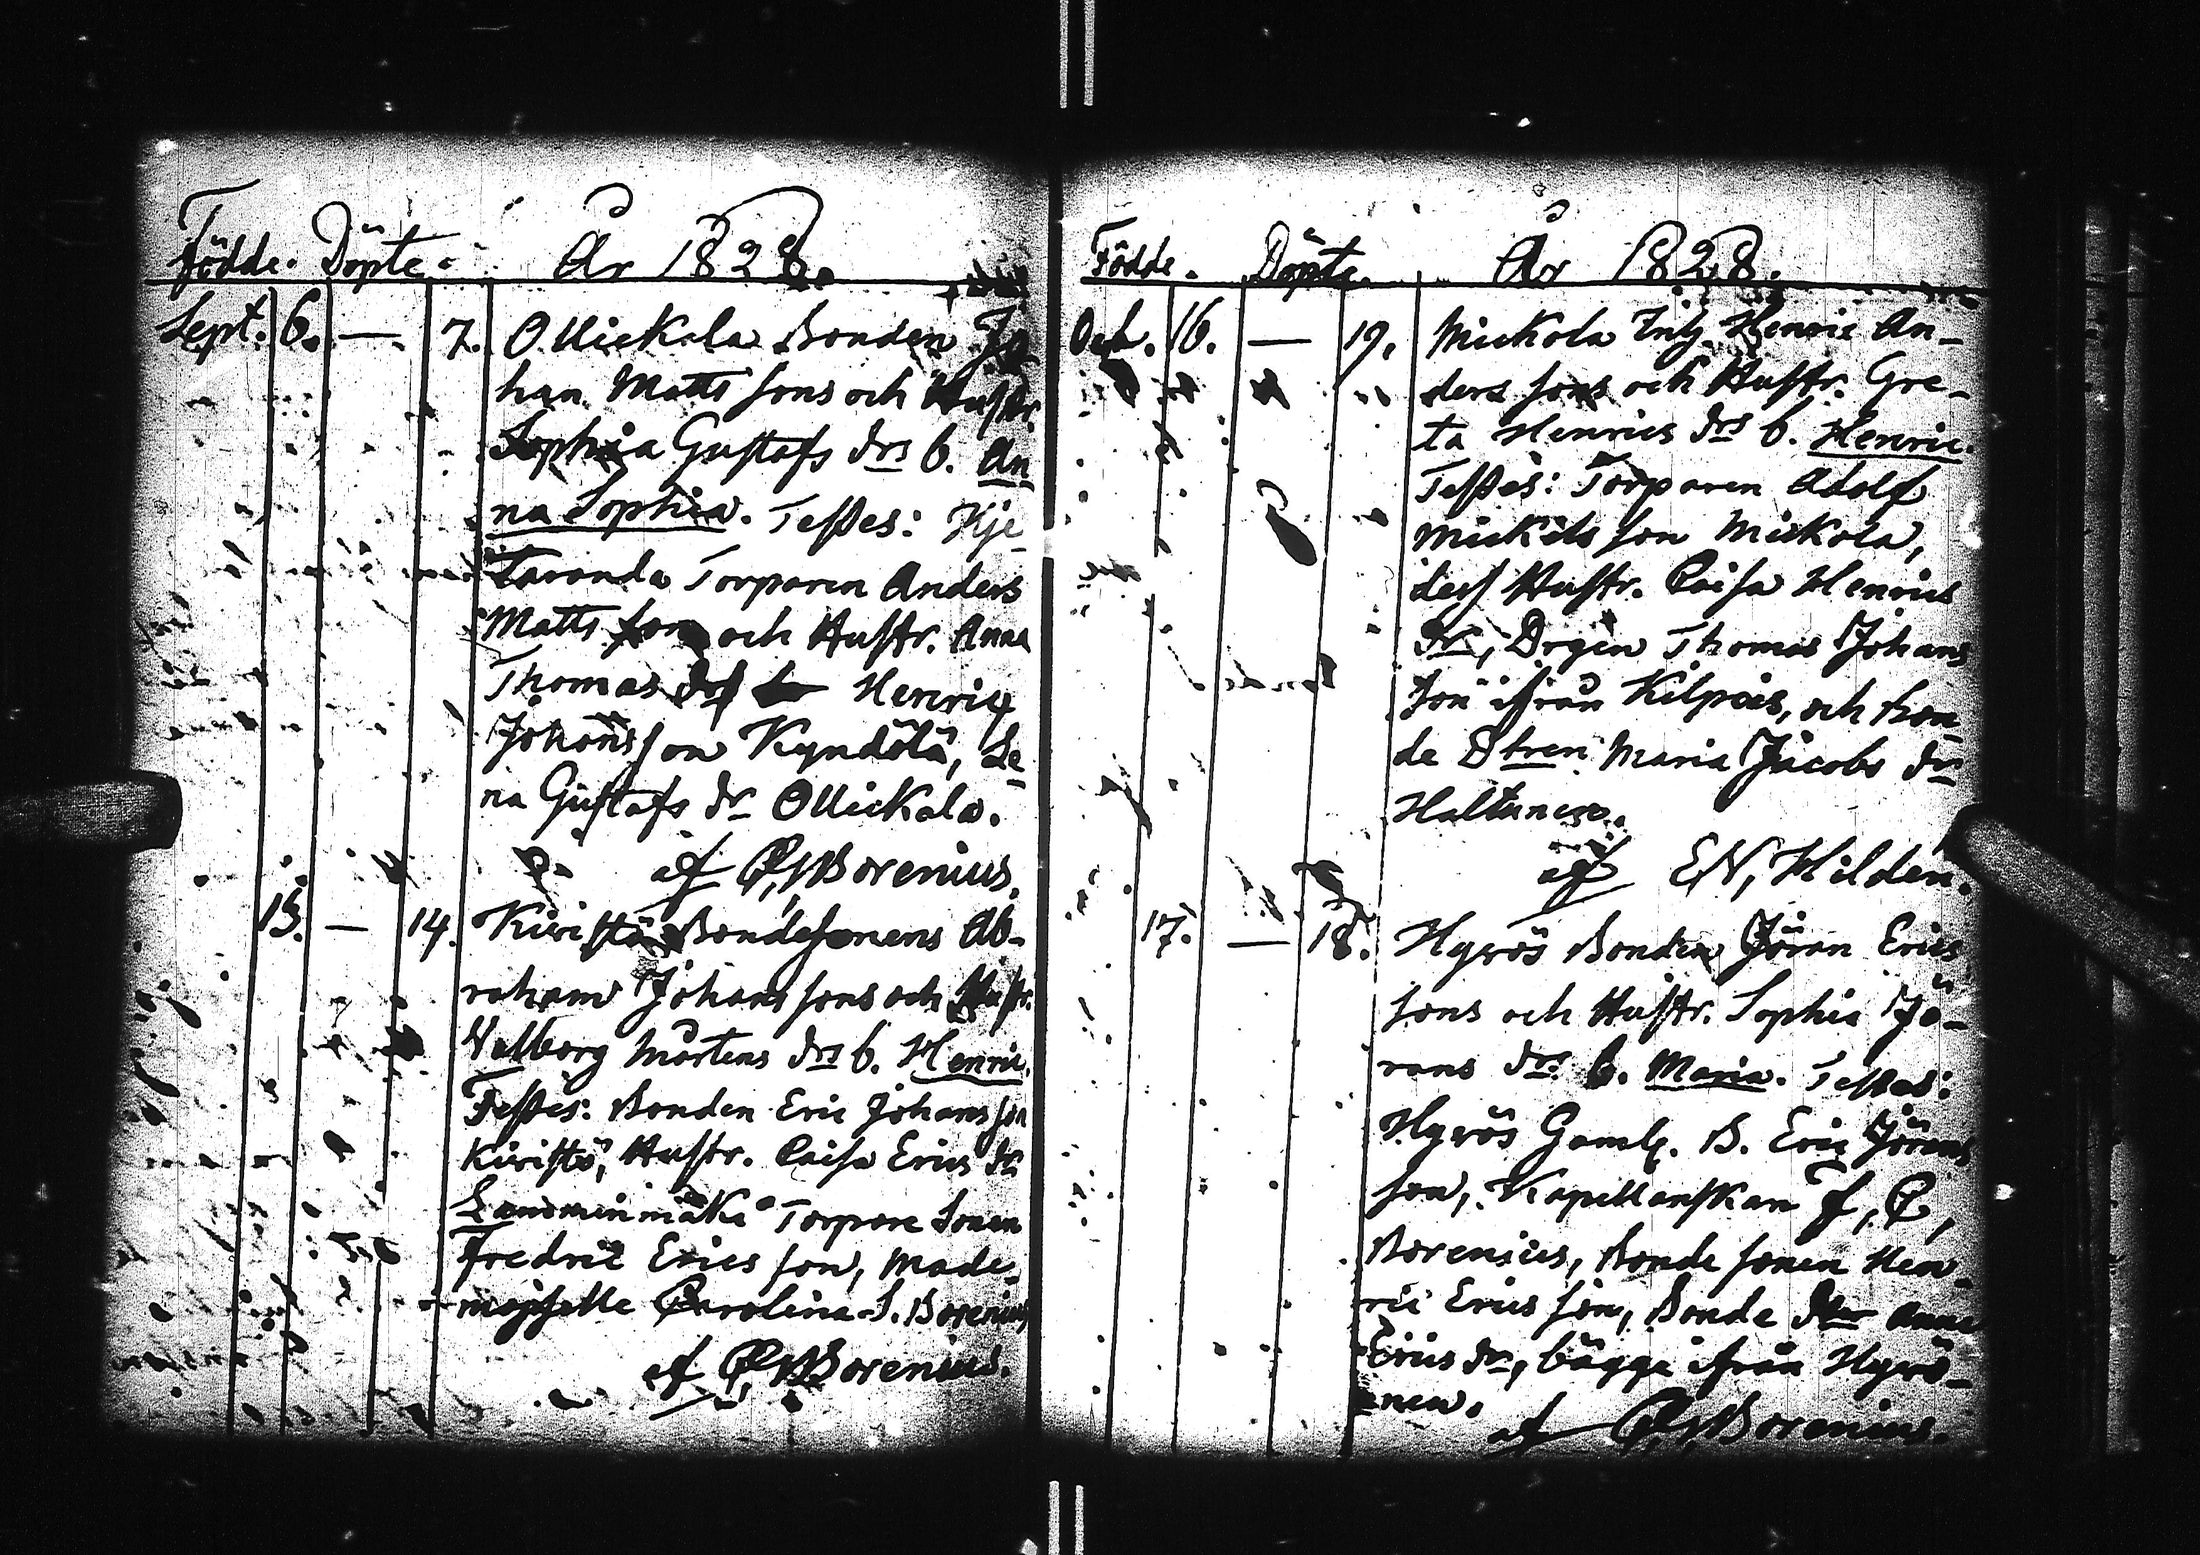 Födde. Döpte. År 1828.
Sept. 6. — 7. Ollickala Bonden Jo
han Matts sons och Hustr.
Sophia Gustafs drs b. An
na Sophia. Testes: Kje
Torparen Anders
Matts son och Hustr. Anna
Thomas Henric
Johans son Kyndölä, Le
na Gustafs dr Ollickala.
af C, M Borenius.
13. — 14. Kiristö Bondesonens Ab-
raham Johans sons och Hustr.
Valborg Mårtens drs b. Henric.
Testes: Bonden Eric Johans son
Kiristö, Hustr. Caisa Erics dr
Torpare Sonen
Fredric Erics son, Made-
moiselle Carolina S. Borenius
af C, M Borenius.
Födde. Döpte. År 1828.
Oct. 16. — 19. Mickola Inh. Henric An-
ders sons och Hustr. Gre-
ta Henrics drs b. Henric.
Testes: Torparen Adolf
Mickels son Mickola,
dess Hustr. Caisa Henrics
dr, Drgen Thomas Johans
son ifrån Kilpois, och Bon
de Dtren Maria Jacobs dr
Haltuness.
af E, N, Hilden.
17. — 18. Hyrös Bonden Jöran Erics
sons och Hustr. Sophia Jö-
rans drs b. Maria. Testes:
Hyrös Gaml. B. Eric Jörans
son, Kapellanskan F, C,
Borenius, Bonde sonen Hen-
ric Erics son, Bonde dtr Anna
Erics dr, bägge ifrån Hyrö-
nen.
af C, M Borenius.